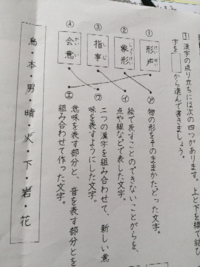 ① 漢字の成り立ちには次の四つがあります。上と下を線で
字を□から選んで書きましょう。
① 形声
② 象形
③ 指事
④ 会意
㋐ 物の形をそのままかたどった文字。
㋑ 絵で表すことのできないことがらを、
点や線などで表した文字。
㋒ 二つの漢字を組み合わせて、新しい意
味を表すようにした文字。
㋓ 意味を表す部分と、音を表す部分とを
組み合わせて作った文字。
鳥・本・男・暗・火・下・岩・花